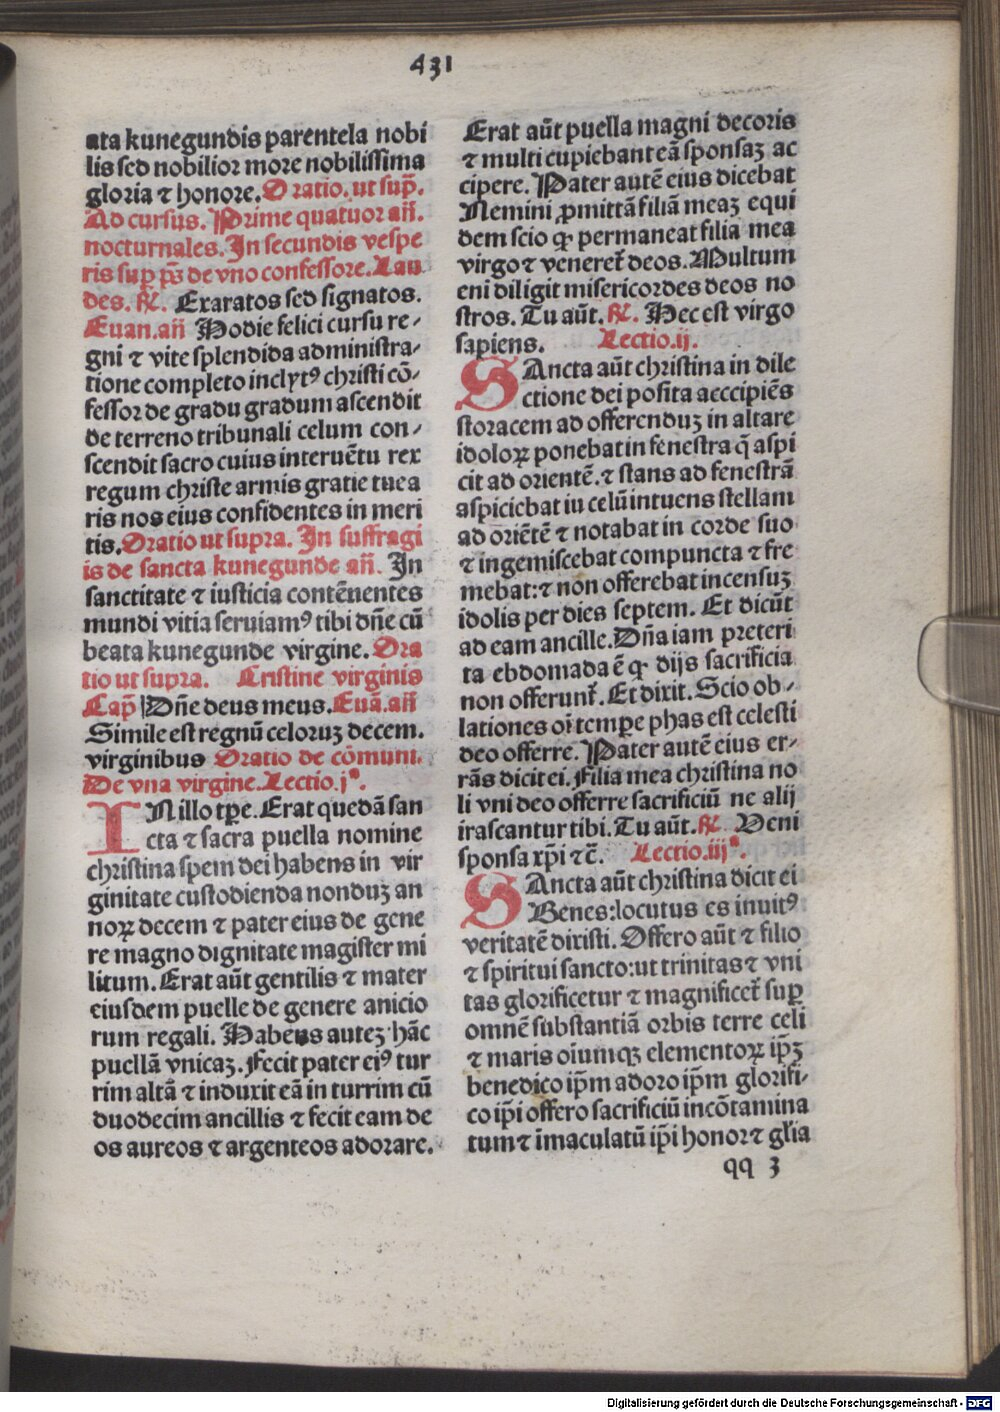 431
ata kunegundis parentela nobi
lis sed nobilior more nobilissima
gloria ⁊ honore. Oratio. ut sup̄.
Ad cursus. Prime quatuor an̄.
nocturnales. In secundis vespe
ris sup̱ p̄s de vno confessore. Lau
des. ꝶ. Exaratos sed signatos.
Euan. an̄ Hodie felici cursu re⸗
gni ⁊ vite splendida administra⸗
tione completo inclytꝰ christi cō⸗
fessor de gradu gradum ascendit
de terreno tribunali celum con⸗
scendit sacro cuius interuētu rex
regum christe armis gratie tue a
ris nos eius confidentes in meri
tis. Oratio ut supra. In suffragi
is de sancta kunegunde an̄. In
sanctitate ⁊ iusticia contēnentes
mundi vitia seruiamꝰ tibi dn̄e cū
beata kunegunde virgine. Ora
tio ut supra. Cristine virginis
Cap̄ Dn̄e deus meus. Euā. an̄
Simile est regnū celoruꝫ decem.
virginibus Oratio de cōmuni.
De vna virgine. Lectio. jᵃ.
IN illo tp̄e. Erat quedā san
cta ⁊ sacra puella nomine
christina spem dei habens in vir
ginitate custodienda nonduꝫ an
noꝝ decem ⁊ pater eius de gene
re magno dignitate magister mi
litum. Erat aūt gentilis ⁊ mater
eiusdem puelle de genere anicio
rum regali. Habens auteꝫ hāc
puellā vnicaꝫ. Fecit pater eiꝰ tur
rim altā ⁊ induxit eā in turrim cū
duodecim ancillis ⁊ fecit eam de
os aureos ⁊ argenteos adorare.
Erat aūt puella magni decoris
⁊ multi cupiebant eā sponsaꝫ ac
cipere. Pater autē eius dicebat
Nemini ꝓmittā filiā meaꝫ equi
dem scio ꝙ permaneat filia mea
virgo ⁊ veneret̄ deos. Multum
eni diligit misericordes deos no
stros. Tu aūt. ꝶ. Hec est virgo
sapiens. Lectio. ij.
SAncta aūt christina in dile
ctione dei posita aeccipiēs
storacem ad offerenduꝫ in altare
idoloꝝ ponebat in fenestra q̄ aspi
cit ad orientē. ⁊ stans ad fenestrā
aspiciebat iu celū intuens stellam
ad oriētē ⁊ notabat in corde suo
⁊ ingemiscebat compuncta ⁊ fre
mebat: ⁊ non offerebat incensuꝫ
idolis per dies septem. Et dicūt
ad eam ancille. Dn̄a iam preteri
ta ebdomada ē ꝙ dijs sacrificia
non offerunt̄. Et dixit. Scio ob⸗
lationes oī tempe phas est celesti
deo offerre. Pater autē eius er⸗
rās dicit ei. Filia mea christina no
li vni deo offerre sacrificiū ne alij
irascantur tibi. Tu aūt. ꝶ. Veni
sponsa xp̄i ⁊ c̄. Lectio. iijᵃ.
SAncta aūt christina dicit ei
Benes: locutus es inuitꝰ
veritatē dixisti. Offero aūt ⁊ filio
⁊ spiritui sancto: ut trinitas ⁊ vni
tas glorificetur ⁊ magnificet̄ sup̱
omnē substantiā orbis terre celi
⁊ maris oīumqꝫ elementoꝝ ip̄ꝫ
benedico ip̄m adoro ip̄m glorifi⸗
co ip̄i offero sacrificiū incōtamina
tum ⁊ īmaculatū ip̄i honor ⁊ gl̄ia
qq 3
Digitalisierung gefördert durch die Deutsche Forschungsgemeinschaft - DFG